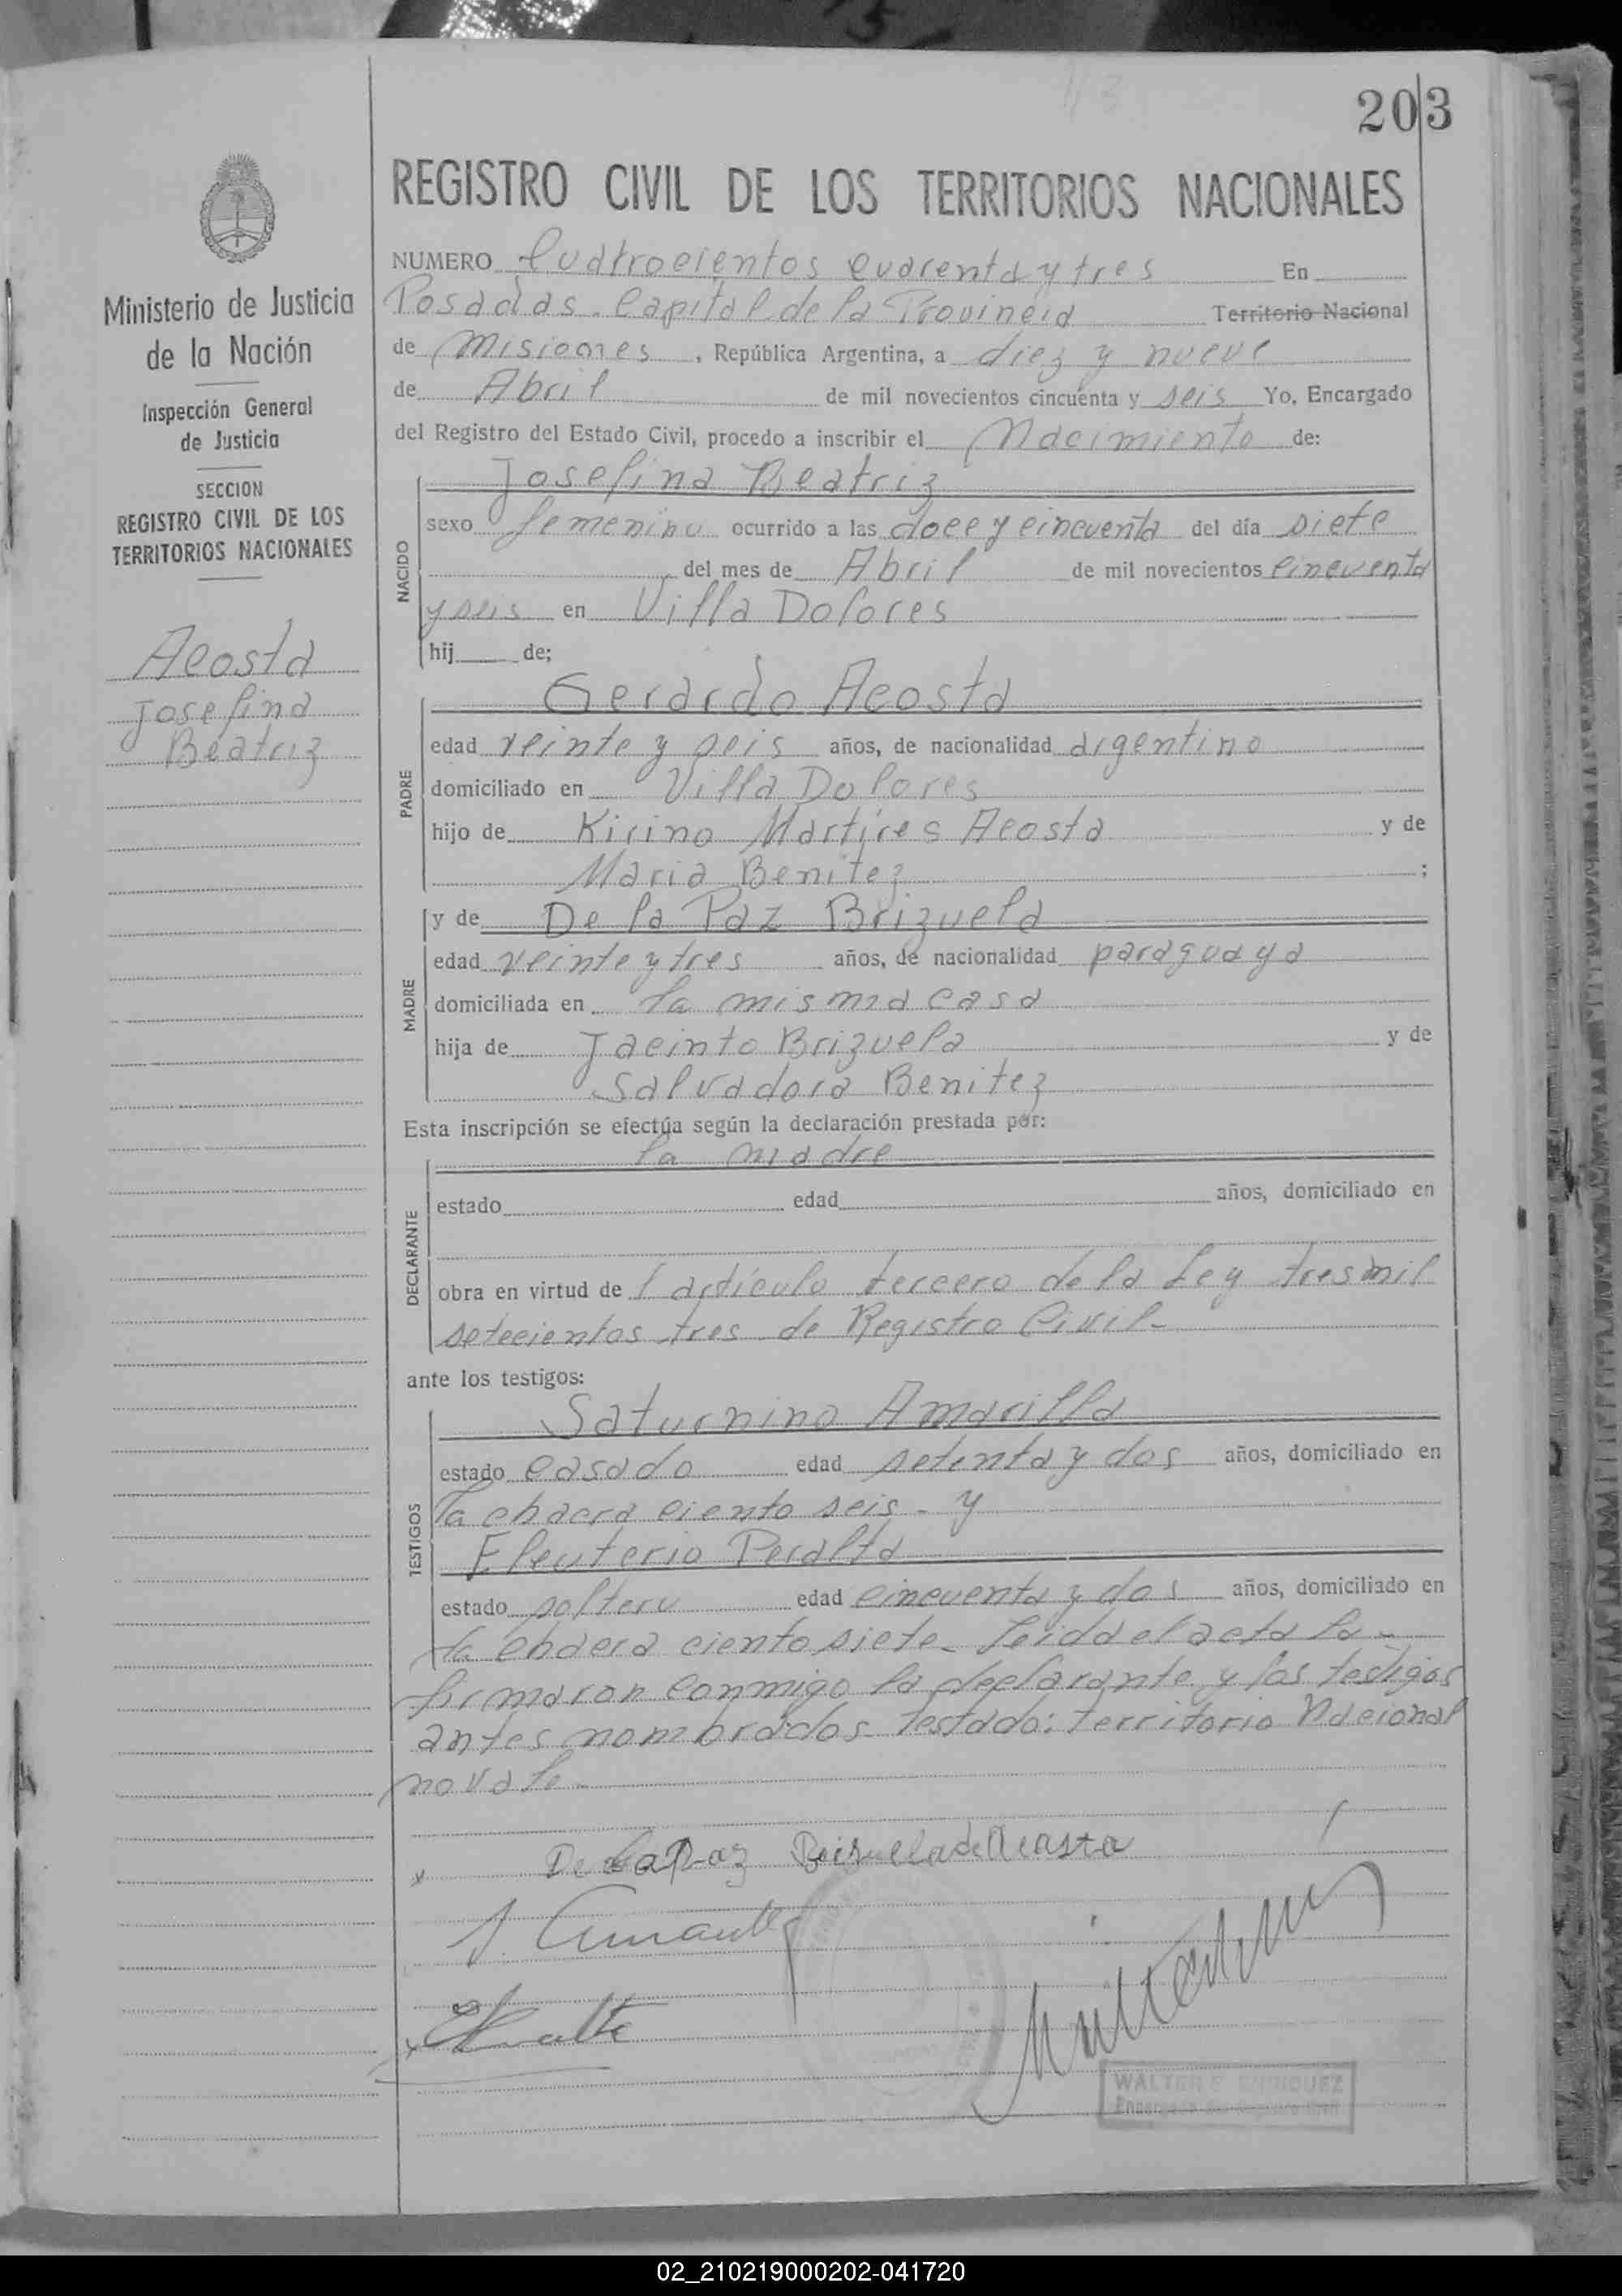 203
REGISTRO CIVIL DE LOS TERRITORIOS NACIONALES
Ministerio de Justicia
de la Nación
Inspección General
de Justicia
SECCION
REGISTRO CIVIL DE LOS
TERRITORIOS NACIONALES
Acosta
Josefina
Beatriz
NUMERO Cuatrocientos cuarenta y tres En
Posadas. Capital de la Provincia Territorio Nacional
de Misiones, República Argentina, a diez y nueve
de Abril de mil novecientos cincuenta y seis Yo, Encargado
del Registro del Estado Civil, procedo a inscribir el Nacimiento de:
NACIDO
Josefina Beatriz
sexo femenino ocurrido a las doce y cincuenta del día siete
del mes de Abril de mil novecientos cincuenta
y seis en Villa Dolores
hij de;
PADRE
Gerardo Acosta
edad veinte y seis años, de nacionalidad argentino
domiciliado en Villa Dolores
hijo de Kirino Martires Acosta y de
Maria Benitez ;
MADRE
y de De la Paz Brizuela
edad veinte y tres años, de nacionalidad paraguaya
domiciliada en la misma casa
hija de Jacinto Brizuela y de
Salvadora Benitez
Esta inscripción se efectúa según la declaración prestada por:
DECLARANTE
la madre
estado edad años, domiciliado en
obra en virtud de l artículo tercero de la Ley tres mil
setecientos tres de Registro Civil-
ante los testigos:
TESTIGOS
Saturnino Amarilla
estado casado edad setenta y dos años, domiciliado en
la chacra ciento seis - y
Eleuterio Peralta
estado soltero edad cincuenta y dos años, domiciliado en
la chacra ciento siete- Leida el acta la-
firmaron conmigo la declarante y los testigos
antes nombrados- Testado: territorio Nacional
no vale-
De la Paz Brisuella de Acosta
WALTER E. ENRIQUEZ
Encargado del Registro Civil
02_210219000202-041720